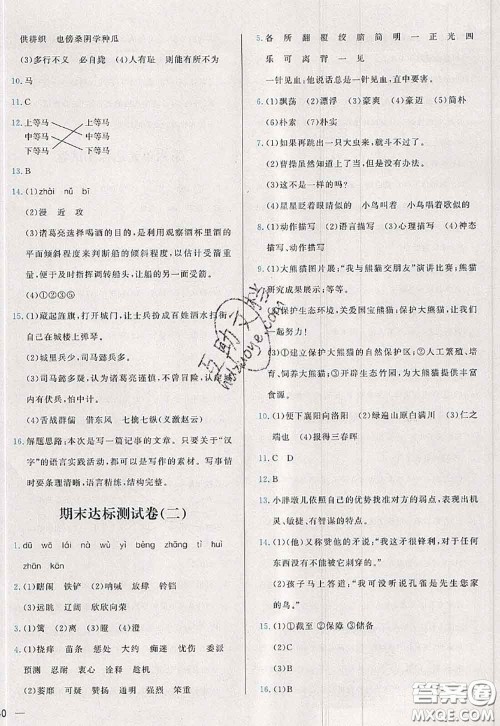 供耕织 也傍桑阴学种瓜
(3)多行不义 必自毙 (4)人有耻 则能有所不为
10. 马
11. C
12. 上等马 上等马
中等马 中等马
下等马 下等马
13. B
14. (1)zhài nǔ bī
(2)漫 近 攻
(3)诸葛亮选择喝酒的目的,是利用观察酒杯里酒的
平面倾斜程度来判断船的倾斜程度,以估计受箭重
量,便于及时指挥调转船头,达到船的受箭平衡。
(4)①③⑤
15. (1)藏起旌旗,打开城门,让士兵扮成百姓洒水扫街,
自己在城楼上弹琴。
(2)城里兵少,司马懿兵多。
(3)司马懿多疑,认为诸葛亮谨慎,不曾冒险,认为城
内有伏兵,怕中计。
(4)舌战群儒 借东风 七擒七纵(义激赵云)
16. 解题思路:本次是写一篇记事的文章。只要关于“汉
字”的语言实践活动,都可以写作的素材。写事情
时要条理清晰,语言精练,结构完整。
期末达标测试卷(二)
1. dū wō lài nà wù yì bèng zhāng tǐ huì
zhān kān
2. (1)瞎闹 铁铲 (2)呐喊 放肆 铃铛
(3)远眺 辽阔 欣欣向荣
3. (1)篱 (2)离 (3)漓 (4)璃
4. (1)挠痒 苗条 感叹 小心 犹豫 忧伤 委派
预测 忍耐 衷心 诠释 趁机
(2)萎靡 可疑 赞扬 通畅 强烈 笨重
各 所 翻 覆 绞 脑 简 明 一 正 光 四
乐 可 离 背 一 见
一针见血:他说话总是一针见血,直中要害。
5. (1)飘荡 (2)漂浮 (3)豪爽 (4)豪迈 (5)简朴
(6)朴素 (7)朴实
6. (1)如果再跳出一只大虫来,就斗不过了。
(2)曹操虽然知道上了当,但是没有办法。
(3)这不是一样的吗?
(4)星星眨着眼睛似的 小鸟叫着 小鸟唱着歌
7. (1)动作描写 (2)语言描写 (3)心理描写 (4)神态
描写、动作描写
8. (1)大熊猫图片展;“我与熊猫交朋友”演讲比赛;熊猫
(2)保护生态环境,关爱国宝熊猫,保护大熊猫,让我们
一起努力!
(3)①建立保护大熊猫的自然保护区;②人工繁殖、培
育、饲养大熊猫;③开辟生态竹园,为大熊猫提供丰
富食物。
10. (1)便下襄阳向洛阳 (2)绿遍山原白满川 (3)仁之
端也 (4)报得三春晖
11. C D
12. A
13. 小胖墩儿依照自己的优势找准对方的弱点,表现出机
灵、敏捷、有智谋的特点。
14. (1)(他)又称赞他的矛说:“我这矛很锋利,对于任何
东西没有不能被它刺穿的。”
(2)孩子马上答道:“我可没听说孔雀是先生您家
的鸟。”
15. (1)①截至 ②保障 ③储备
(2)C
16. (1)B
答案圈
MXQE.COM